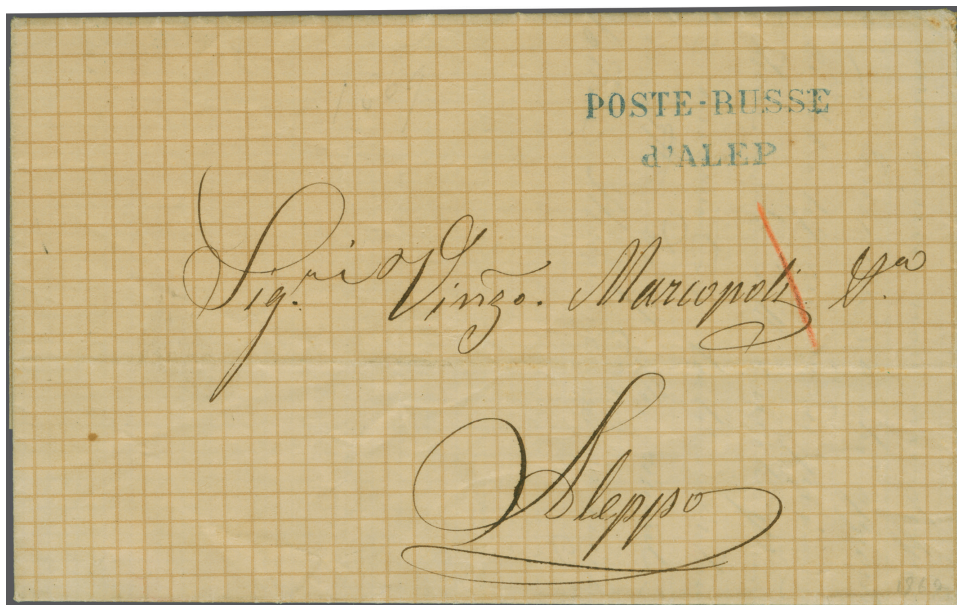 POSTE-RUSSE
d'ALEP
Sig.ri Vinzo. Marcopoli &.
Aleppo